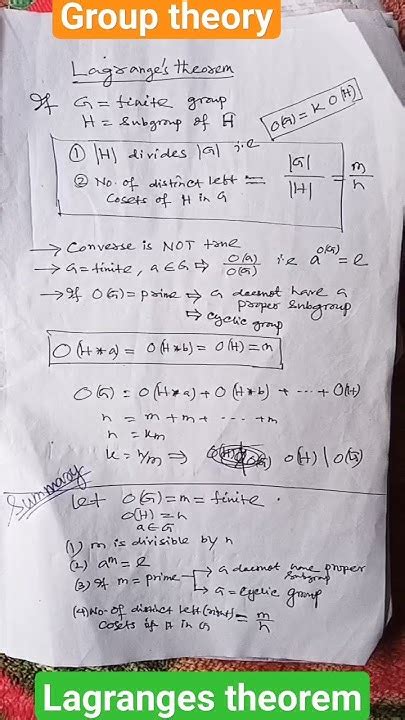 Group theory
Lagrange's theorem
If G = finite group
H = Subgroup of H
O(G) = K O(H)
① |H| divides |G| i.e
② No. of distinct left cosets of H in G = |G| / |H| = m / n
→ Converse is NOT true
→ G = finite, a ∈ G ⇒ O(G) / O(G) i.e a^O(G) = e
→ If O(G) = prime ⇒ G doesnot have a
proper subgroup
⇒ cyclic group
O(H*a) = O(H*b) = O(H) = m
O(G) = O(H*a) + O(H*b) + ... + O(H)
n = m + m + ... + m
n = km
k = n/m ⇒ O(H) | O(G)
Summary
Let O(G) = m = finite.
O(H) = n
a ∈ G
(1) m is divisible by n
(2) a^m = e
(3) If m = prime → G doesnot have proper
subgroup
→ G = cyclic group
(4) No. of distinct left (right) = m / n
Cosets of H in G
Lagranges theorem